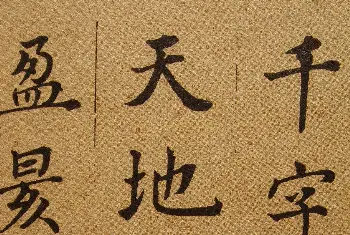 千字
天地
盈昃